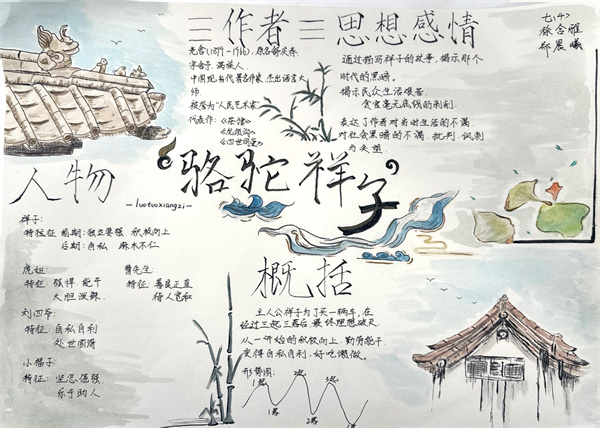 三作者三
老舍(1899-1966),原名舒庆春
字舍予 满族人。
中国现当代著名作家 杰出语言大
师。
被誉为“人民艺术家”
代表作:《茶馆》
《龙须沟》
《四世同堂》
思想感情
通过描写祥子的故事,揭示那个
时代的黑暗。
揭示民众生活艰苦
贪官毫无底线的剥削。
表达了作者对当时生活的不满
对社会黑暗的不满、批判、讽刺
与失望
七(4)
徐含雅
邱晨曦
骆驼祥子
-luotuoxiangzi-
人物
祥子:
特征 前期:独立要强 积极向上
后期:自私 麻木不仁
虎妞:
特征:强悍 能干
大胆泼辣
曹先生:
特征:善良正直
待人宽和
刘四爷:
特征:自私自利
处世圆滑
小福子:
特征:坚忍 倔强
乐于助人
概括
主人公祥子为了买一辆车,在
经过三起三落后,最终理想破灭
从一开始的积极向上、勤劳能干
变得自私自利、好吃懒做。
形势图:
1起
2起
3起
1落
2落
3落